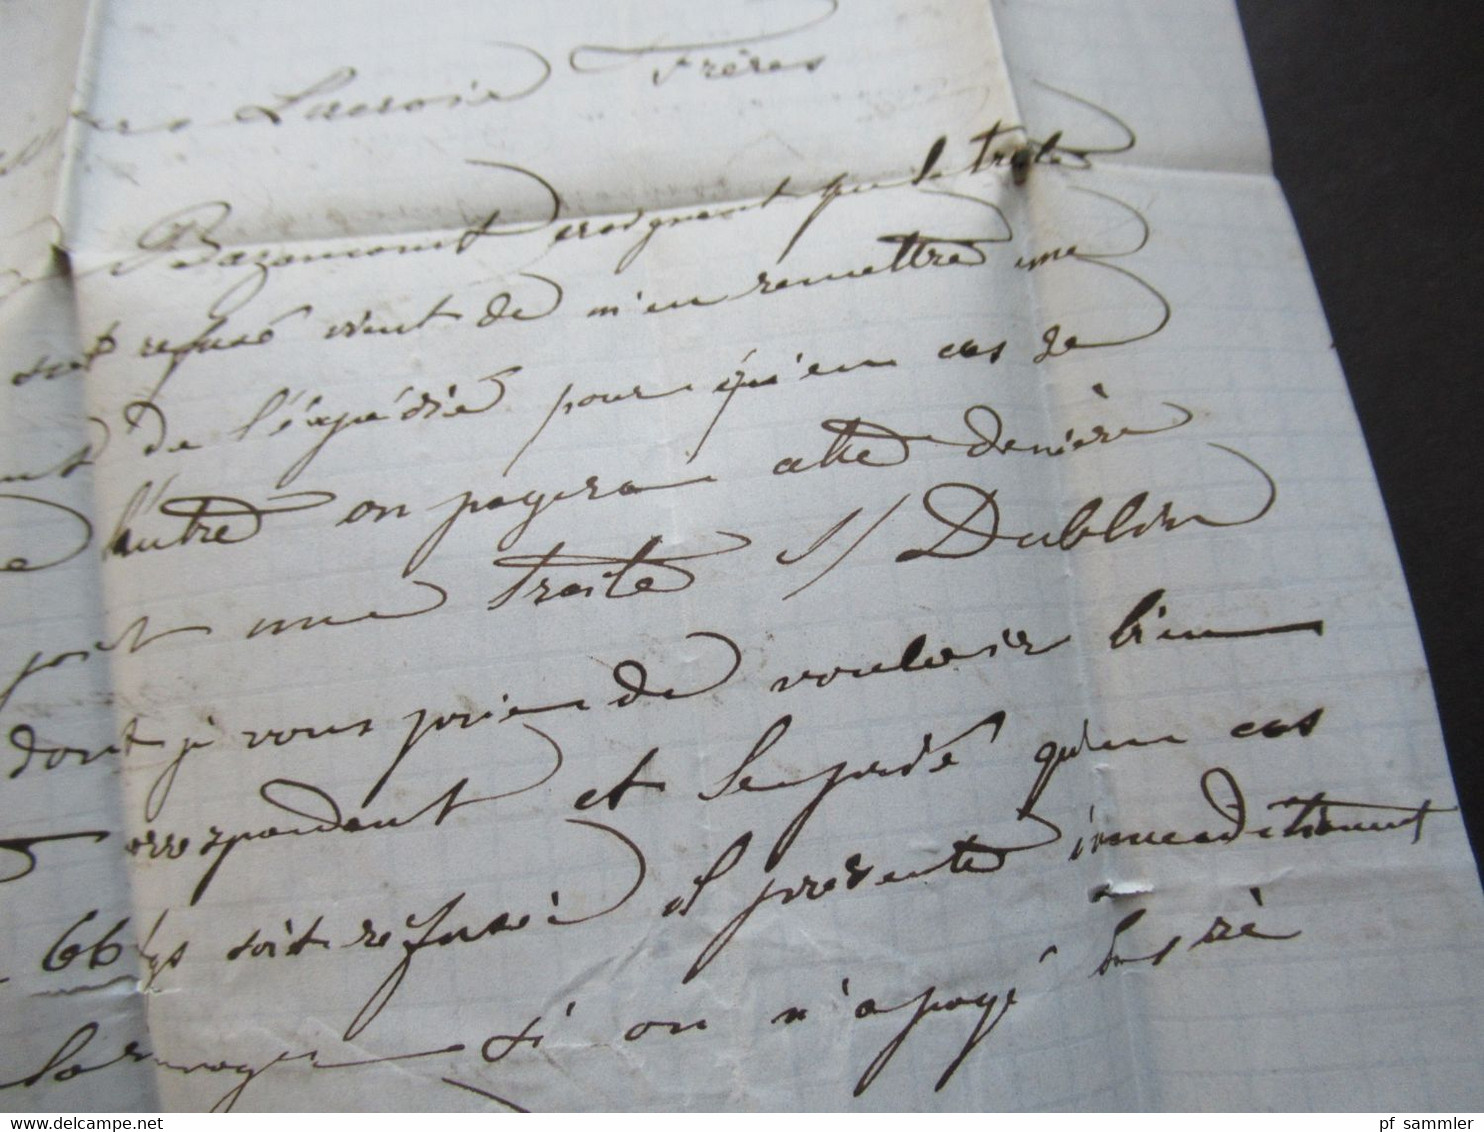 Lacroix Frères
Bazancourt craignant que la traite
soit refusé vient de m'en remettre une
de l'éxpédié pour qu'en cas de
l'autre on payera cette dernière
joit une Traite S/ Dublin
dont je vous prie de vouloir bien
correspondant et le prié qu'en cas
66 soit refusé il présente immeditement
si on n'a payé
pf sammler